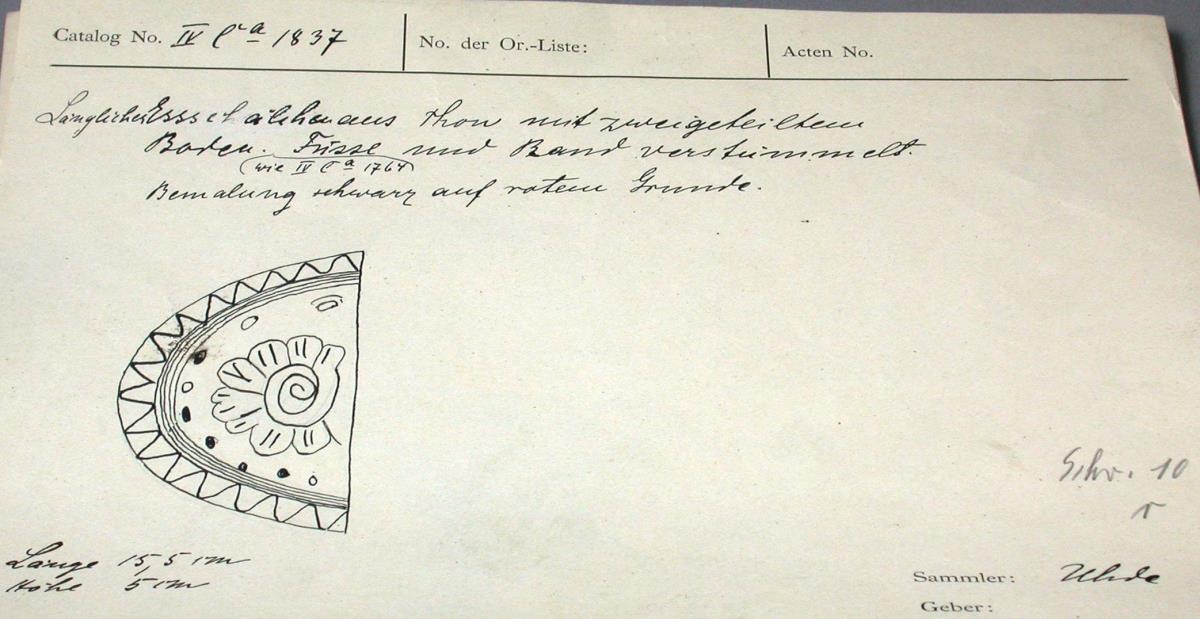 Catalog No. IV Ca 1837
No. der Or.-Liste:
Acten No.
Länglicher Essschälchen aus Thon mit zweigeteiltem
Boden. Füsse und Rand verstümmelt.
(wie IV Ca 1764)
Bemalung schwarz auf rotem Grunde.
Länge 15,5 cm
Höhe 5 cm
Schr. 10
Sammler: Uhde
Geber: